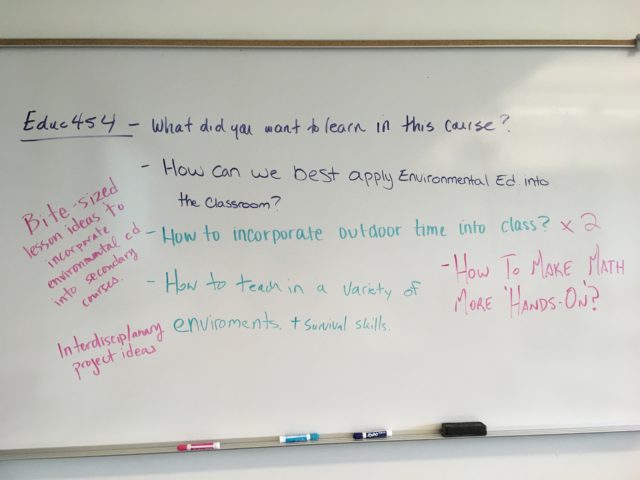 Educ454 - What did you want to learn in this course?
- How can we best apply Environmental Ed. into
the Classroom?
- How to incorporate outdoor time into class? x 2
- How to teach in a variety of
enviroments. + survival skills.
- HOW TO MAKE MATH
MORE 'HANDS-ON'?
Bite-sized
lesson ideas to
incorporate
environmental ed
into secondary
courses.
Interdisciplanary
project ideas
EXPO